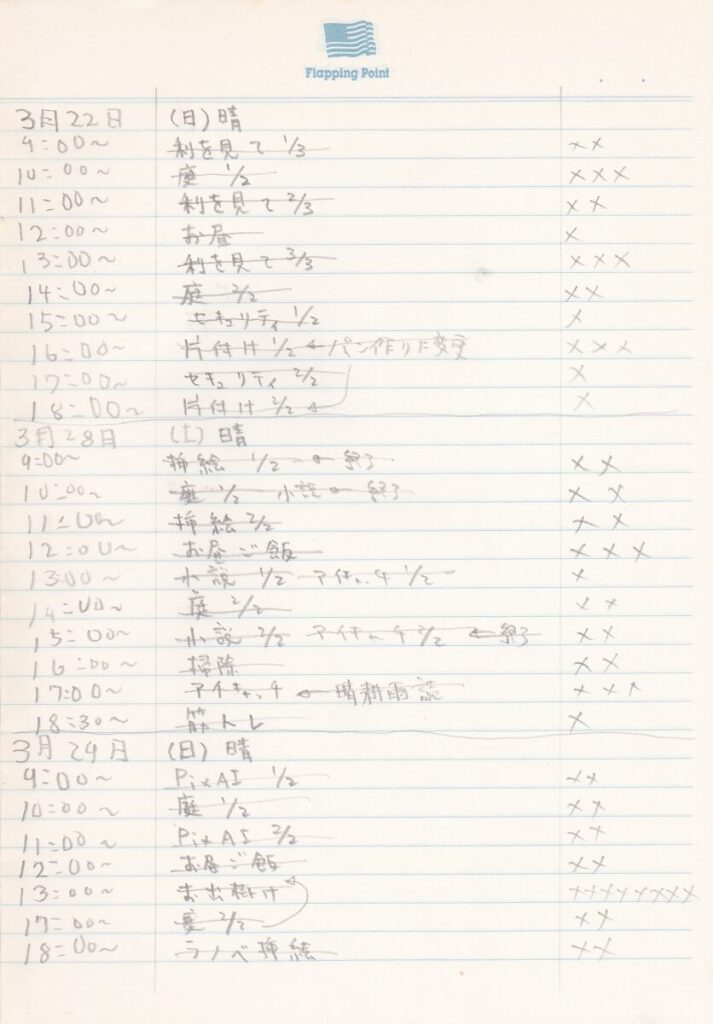 Flapping Point
3月22日 (日)晴
9:00~ 利を見て 1/3 ××
10:00~ 庭 1/2 ×××
11:00~ 利を見て 2/3 ××
12:00~ お昼 ×
13:00~ 利を見て 3/3 ×××
14:00~ 庭 2/2 ××
15:00~ セキュリティ 1/2 ×
16:00~ 片付け 1/2 ← パン作りに変更 ×××
17:00~ セキュリティ 2/2 ×
18:00~ 片付け 1/2 ←  ×
3月28日 (土)晴
9:00~ 挿絵 1/2 ← 終了 ××
10:00~ 庭 1/2 小説 ← 終了 ××
11:00~ 挿絵 2/2 ××
12:00~ お昼ご飯 ×××
13:00~ 小説 1/2 アイキャッチ 1/2 ×
14:00~ 庭 2/2 ××
15:00~ 小説 2/2 アイキャッチ 2/2 ← 終了 ××
16:00~ 掃除 ××
17:00~ アイキャッチ ← 晴耕雨読 ×××
18:30~ 筋トレ ×
3月29日 (日)晴
9:00~ PixAI 1/2 ××
10:00~ 庭 1/2 ××
11:00~ PixAI 2/2 ××
12:00~ お昼ご飯 ××
13:00~ お出掛け ← ××××××××
17:00~ 庭 2/2 ××
18:00~ ラノベ挿絵 ××